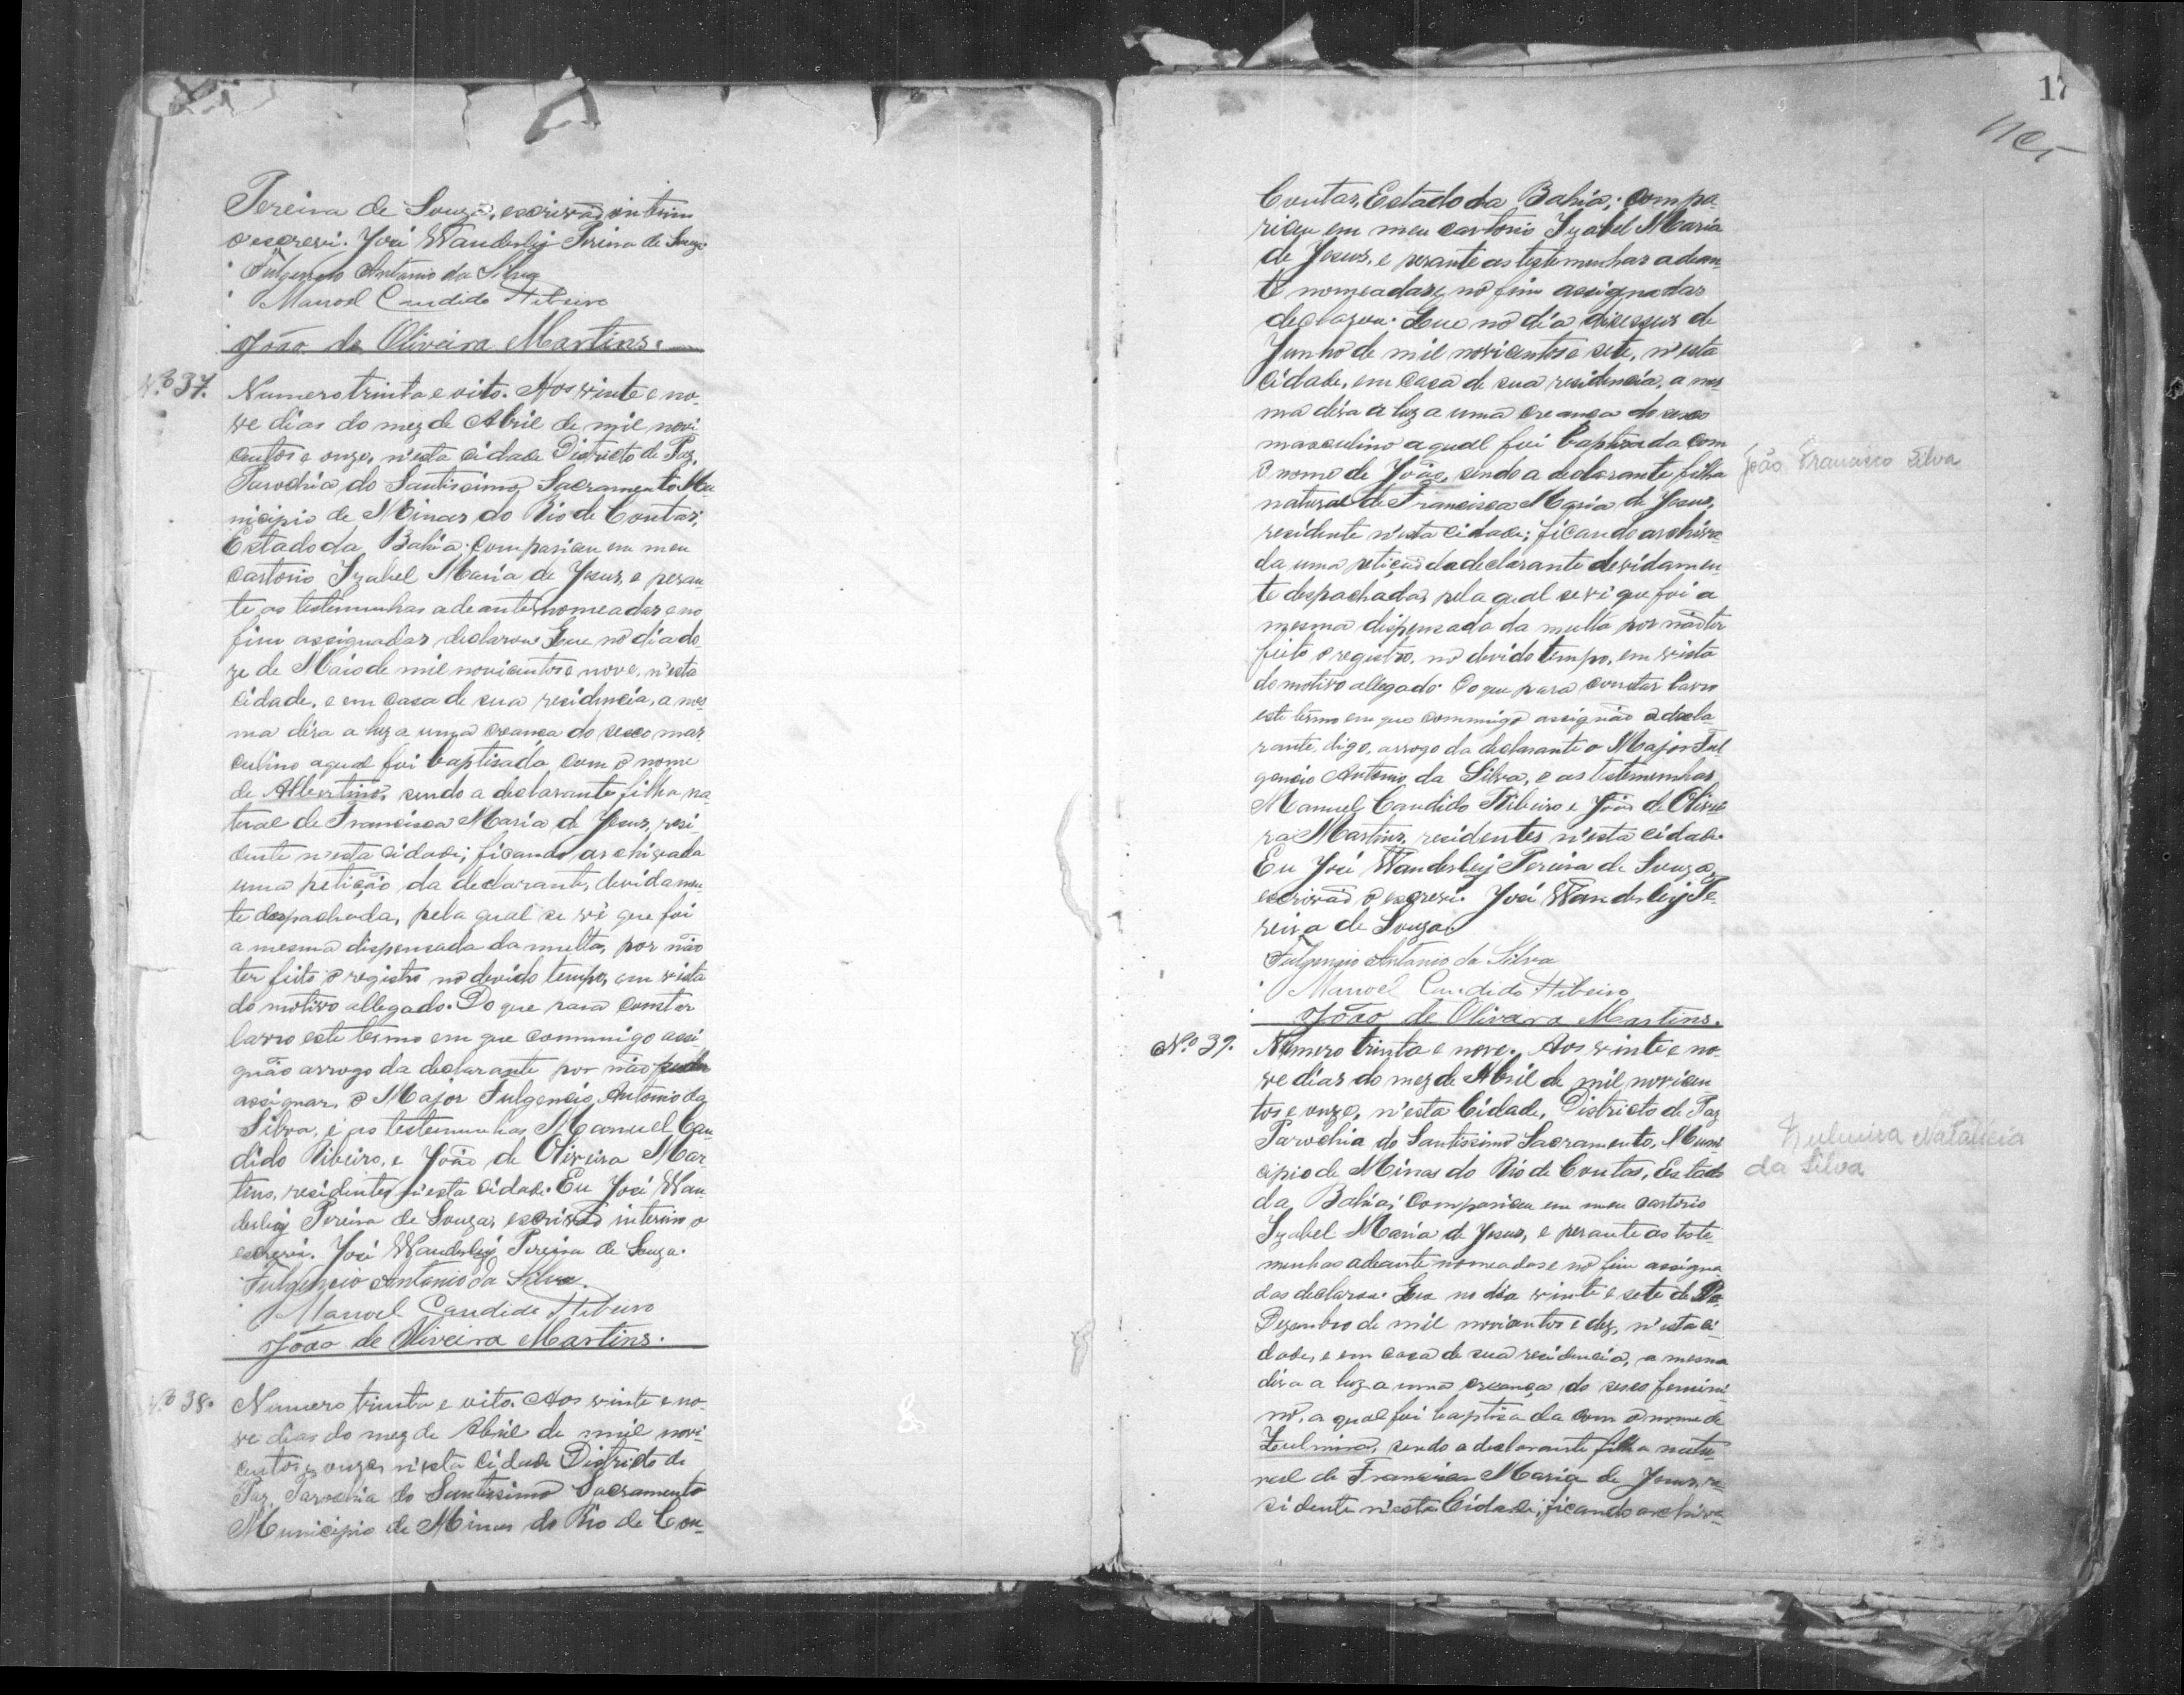 Pereira de Souza, escrivão interino
o escrevi. José Wanderley Pereira de Souza
Fulgencio Antonio da Silva
Manoel Candido Ribeiro
João de Oliveira Martins.
Nº 37.
Numero trinta e oito. Aos vinte e no-
ve dias do mez de Abril de mil novi
centos e onze, n'esta cidade Districto de Paz,
Parochia do Santissimo Sacramento Mu
nicipio de Minas do Rio de Contas,
Estado da Bahia; compariceu em meu
cartorio Izabel Maria de Jesus, e peran
te as testemunhas adeante nomeadas e no
fim assignadas declarou: Que no dia do
ze de Maio de mil novicentos e nove, n'esta
cidade, e em casa de sua residencia, a mes
ma déra a luz a uma creança do sexo mas
culino a qual foi baptisada com o nome
de Albertino, sendo a declarante filha na
tural de Francisca Maria de Jesus, resi-
dente n'esta cidade; ficando archivada
uma petição da declarante, devidamen
te despachada, pela qual se vê que foi
a mesma dispensada da multa, por não
ter feito o registro no devido tempo, em vista
do motivo allegado. Do que para constar
lavro este termo em que commigo assi
gnão arrogo da declarante por não poder
assignar, o Major Fulgencio Antonio da
Silva, e as testemunhas Manuel Can
dido Ribeiro, e João de Oliveira Mar
tins, residentes n'esta cidade. Eu José Wan
derley Pereira de Souza, escrivão interino o
escrevi. José Wanderley Pereira de Souza.
Fulgencio Antonio da Silva.
Manoel Candido Ribeiro
João de Oliveira Martins.
Nº 38.
Numero trinta e oito. Aos vinte e no-
ve dias do mez de Abril de mil novi-
centos e onze, n'esta cidade Districto de
Paz, Parochia do Santissimo Sacramento
Municipio de Minas do Rio de Con-
17
Contas, Estado da Bahia; compa-
riceu em meu cartorio Izabel Maria
de Jesus, e perante as testemunhas adean-
te nomeadas e no fim assignadas
declarou: Que no dia diseseus de
Junho de mil novicentos e sete, n'esta
cidade, em casa de sua residencia, a mes
ma déra a luz a uma creança do sexo
masculino a qual foi baptisada com
o nome de João, sendo a declarante filha
natural de Francisca Maria de Jesus,
residente n'esta cidade; ficando archiva-
da uma petição da declarante devidamen-
te despachada, pela qual se vê que foi a
mesma dispensada da multa por não ter
feito o registro, no devido tempo, em vista
do motivo allegado. Do que para constar lavro
este termo em que commigo assignão a decla-
rante, digo, arrogo da declarante o Major Ful
gencio Antonio da Silva, e as testemunhas
Manuel Candido Ribeiro e João de Olivei
ra Martins, residentes n'esta cidade.
Eu José Wanderley Pereira de Souza,
escrivão o escrevi. José Wanderley Pe-
reira de Souza.
Fulgencio Antonio da Silva
Manoel Candido Ribeiro
João de Oliveira Martins.
João Francisco Silva
Nº 39.
Numero trinta e nove. Aos vinte e no-
ve dias do mez de Abril de mil novicen
tos e onze, n'esta Cidade, Districto de Paz
Parochia do Santissimo Sacramento, Muni
cipio de Minas do Rio de Contas, Estado
da Bahia; compariceu em meu cartorio
Izabel Maria de Jesus, e perante as teste-
munhas adeante nomeadas e no fim assigna
das declarou: Que no dia vinte e sete de De
Dezembro de mil novicentos e dez, n'esta ci-
dade, e em casa de sua residencia, a mesma
déra a luz a uma creança do sexo femini-
no, a qual foi baptisada com o nome de
Zulmira, sendo a declarante filha natu-
ral de Francisca Maria de Jesus, re-
sidente n'esta Cidade; ficando archiva-
Zulmira Natalicia
da Silva